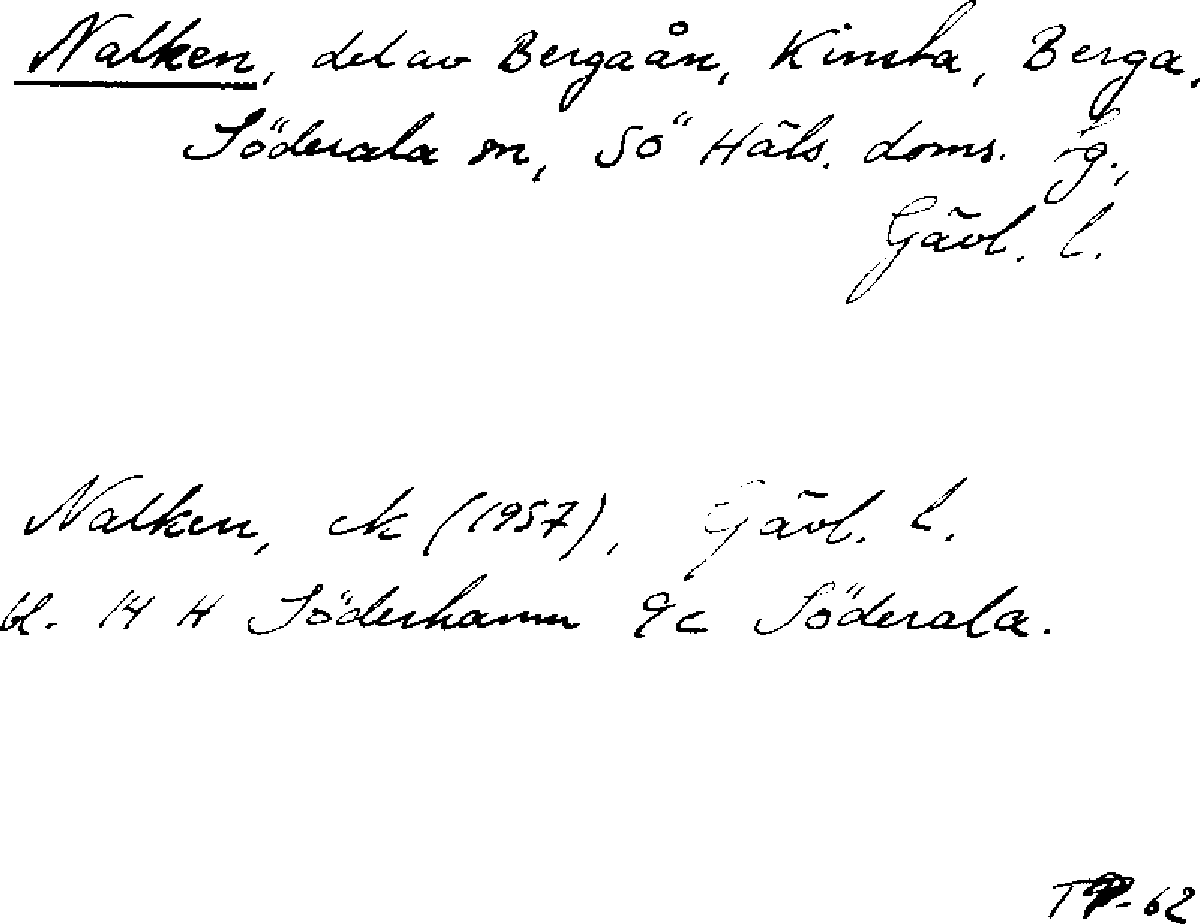 Nalken, del av Bergaån, Kinsta, Berga,
Söderala sn, SÖ Häls. doms. fg.,
Gävl. l.
Nalken, ek (1957), Gävl. l.
bl. 14 H Söderhamn 9c Söderala.
-62